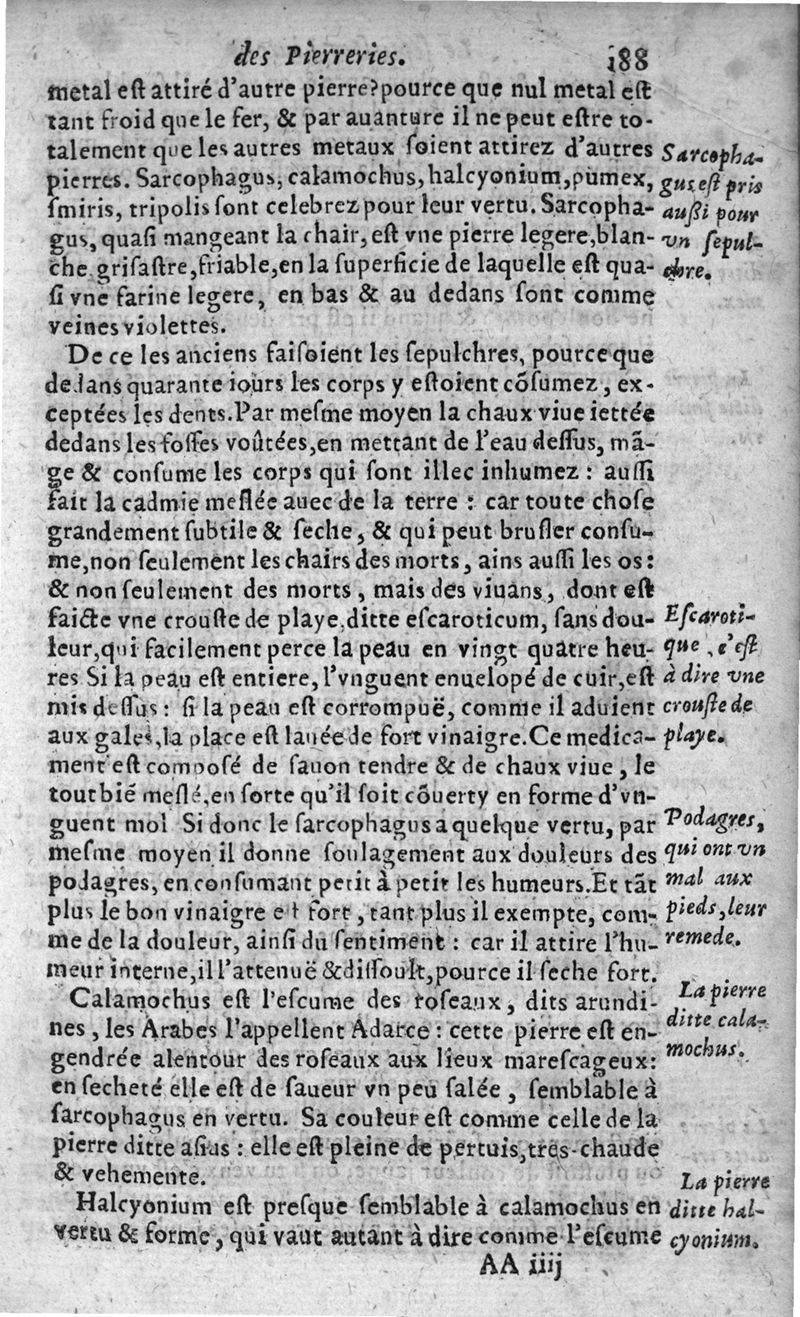 des Pierreries. 188
metal eſt attiré d'autre pierre?pource que nul metal eſt
tant froid que le fer, & par auanture il ne peut eſtre to-
talement que les autres metaux ſoient attirez d'autres
pierres. Sarcophagus, calamochus, halcyonium, pumex,
ſmiris, tripolis ſont celebrez pour leur vertu. Sarcopha-
gus, quaſi mangeant la chair, eſt vne pierre legere, blan-
che griſaſtre, friable, en la ſuperficie de laquelle eſt qua-
ſi vne farine legere, en bas & au dedans ſont comme
veines violettes.
Sarcopha-
gus eſt pris
auſſi pour
vn ſepul-
chre.
De ce les anciens faiſoient les ſepulchres, pource que
dedans quarante iours les corps y eſtoient cõſumez, ex-
ceptées les dents. Par meſme moyen la chaux viue iettée
dedans les foſſes voûtées, en mettant de l'eau deſſus, mã-
ge & conſume les corps qui ſont illec inhumez : auſſi
fait la cadmie meſlée auec de la terre : car toute choſe
grandement ſubtile & ſeche, & qui peut bruſler conſu-
me, non ſeulement les chairs des morts, ains auſſi les os:
& non ſeulement des morts, mais des viuans, dont eſt
faicte vne crouſte de playe, ditte eſcaroticum, ſans dou-
leur, qui facilement perce la peau en vingt quatre heu-
res Si la peau eſt entiere, l'vnguent enuelopé de cuir, eſt
mis deſſus : ſi la peau eſt corrompuë, comme il aduient
aux gales, la place eſt lauée de fort vinaigre. Ce medica-
ment eſt compoſé de ſauon tendre & de chaux viue, le
tout bié meſlé, en ſorte qu'il ſoit cõuerty en forme d'vn-
guent mol Si donc le ſarcophagus a quelque vertu, par
meſme moyen il donne ſoulagement aux douleurs des
podagres, en conſumant petit à petit les humeurs. Et tãt
plus le bon vinaigre eſt fort, tant plus il exempte, com-
me de la douleur, ainſi du ſentiment : car il attire l'hu-
meur interne, il l'attenuë & diſſoult, pource il ſeche fort.
Eſcaroti-
que, c'eſt
à dire vne
crouſte de
playe.
Podagres,
qui ont vn
mal aux
pieds, leur
remede.
Calamochus eſt l'eſcume des roſeaux, dits arundi-
nes, les Arabes l'appellent Adarce : cette pierre eſt en-
gendrée alentour des roſeaux aux lieux mareſcageux:
en ſecheté elle eſt de ſaueur vn peu ſalée, ſemblable à
ſarcophagus en vertu. Sa couleur eſt comme celle de la
pierre ditte aſius : elle eſt pleine de pertuis, tres-chaude
& vehemente.
La pierre
ditte cala-
mochus.
Halcyonium eſt preſque ſemblable à calamochus en
vertu & forme, qui vaut autant à dire comme l'eſcume
La pierre
ditte hal-
cyonium.
AA iiij